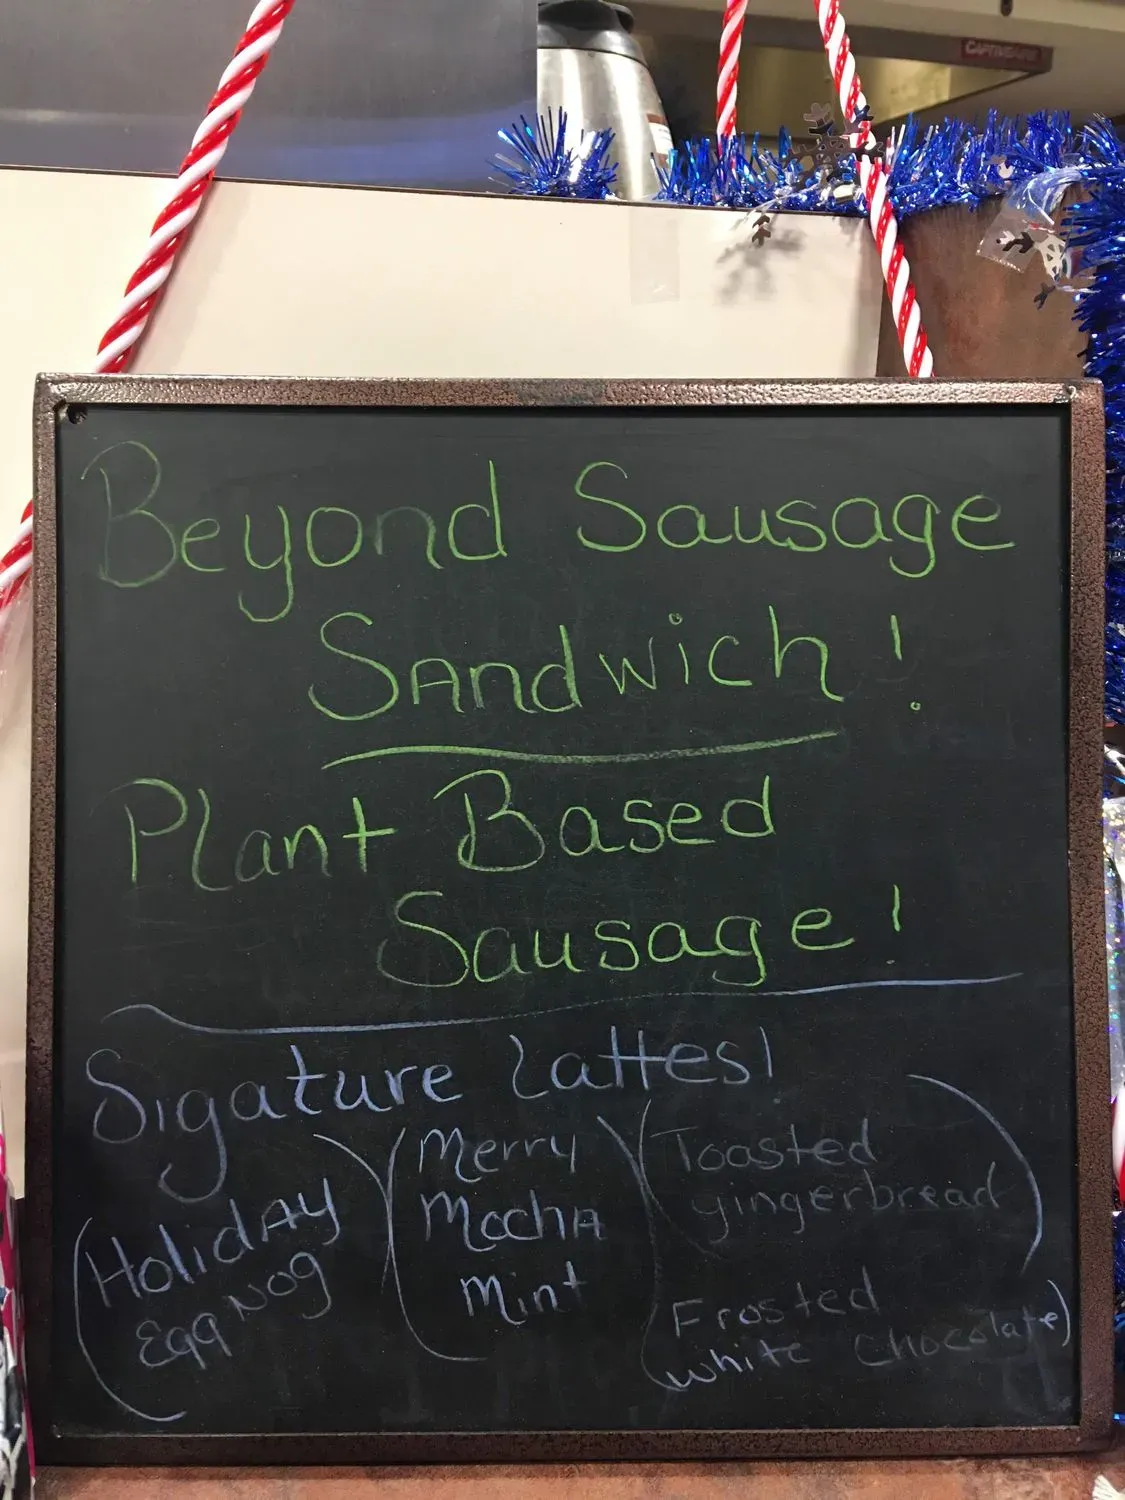 CAPTIVEAIRE
Beyond Sausage
Sandwich!
Plant Based
Sausage!
Sigature Lattes!
Holiday
Egg Nog
Merry
Mocha
Mint
Toasted
gingerbread
Frosted
white chocolate